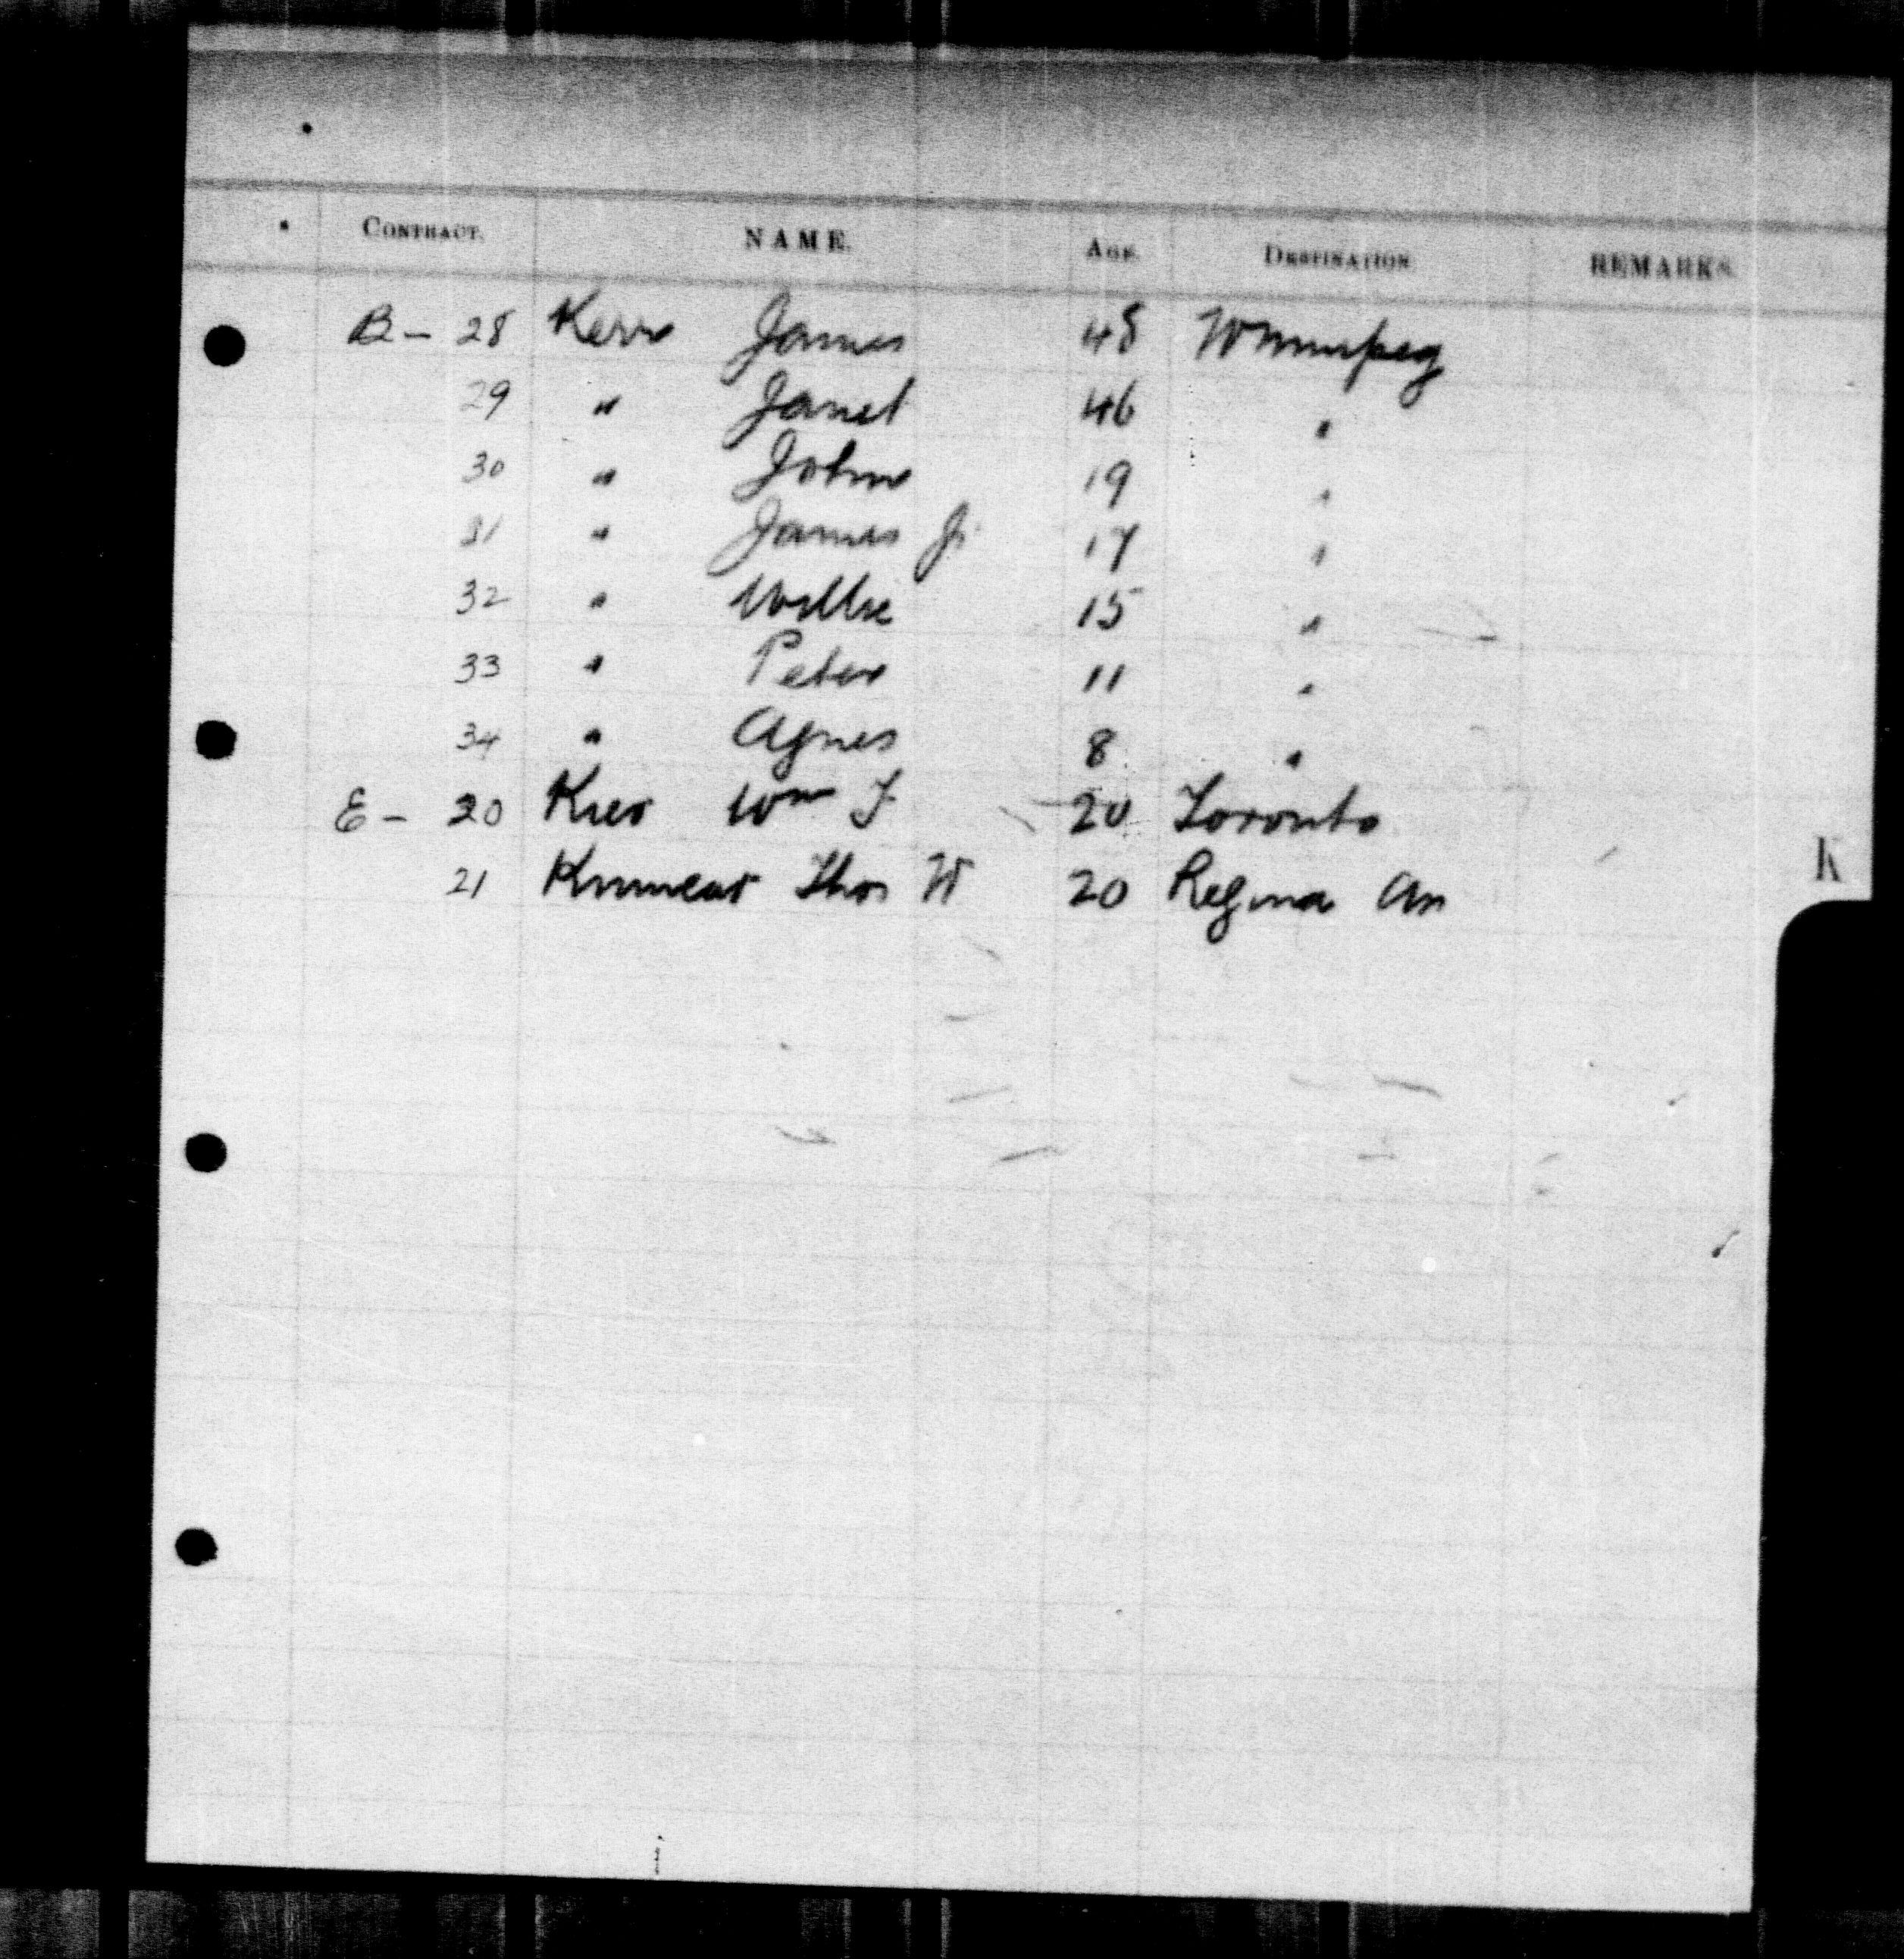 CONTRACT. NAME. AGE. DESTINATION. REMARKS.
B - 28 Kerr James 48 Winnipeg
29 " Janet 46 "
30 " John 19 "
31 " James Jr 17 "
32 " Willie 15 "
33 " Peter 11 "
34 " Agnes 8 "
E - 20 Kier Wm F 20 Toronto
21 Kinnear Thos W 20 Regina
K